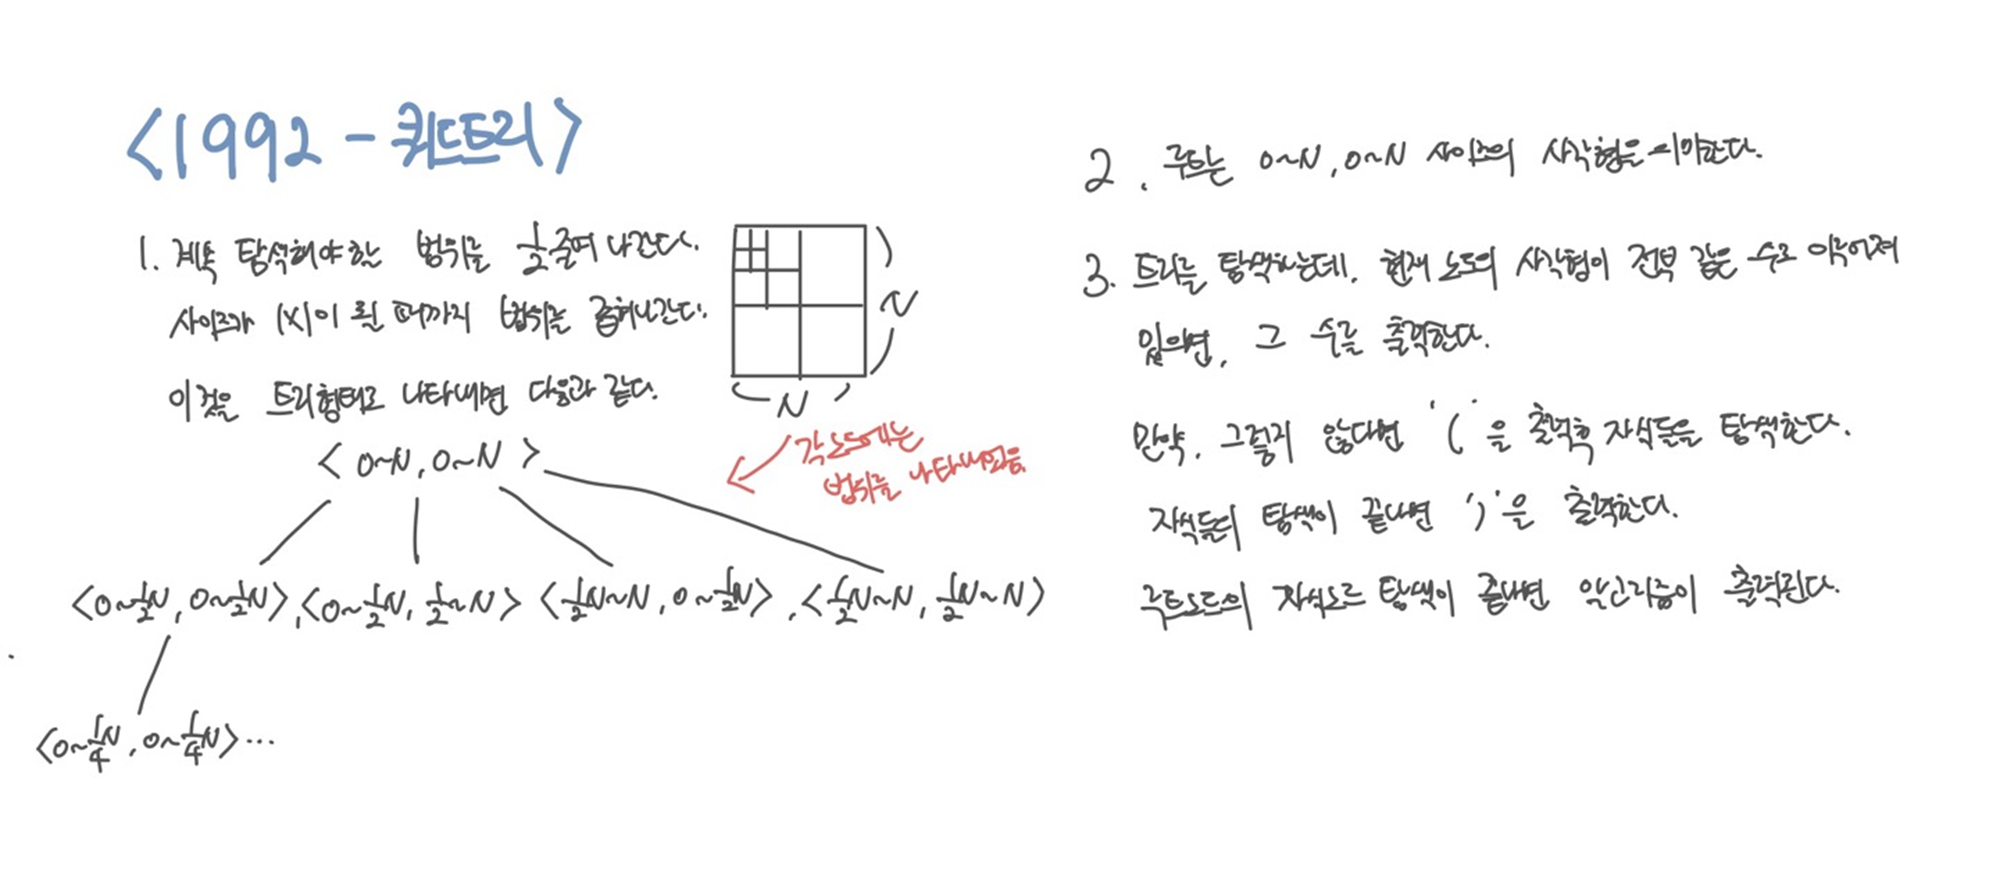 <1992 - 쿼드트리>
1. 계속 탐색해야할 범위를 1/2 줄여 나간다.
사이즈가 1x1이 될 때까지 범위를 줄여나간다.
이것을 트리형태로 나타내면 다음과 같다.
N
N
각 노드에는
범위를 나타내었음
< 0~N, 0~N >
<0~1/2N, 0~1/2N>, <0~1/2N, 1/2~N> <1/2N~N, 0~1/2N>, <1/2N~N, 1/2N~N>
<0~1/4N, 0~1/4N> ...
2. 루트는 0~N, 0~N 사이즈의 사각형을 의미한다.
3. 트리를 탐색하는데, 현재 노드의 사각형이 전부 같은 수로 이루어져
있으면, 그 수를 출력한다.
만약, 그렇지 않다면 '('을 출력후 자식들을 탐색한다.
자식들의 탐색이 끝나면 ')'을 출력한다.
루트노드의 자식노드 탐색이 끝나면 알고리즘이 출력된다.